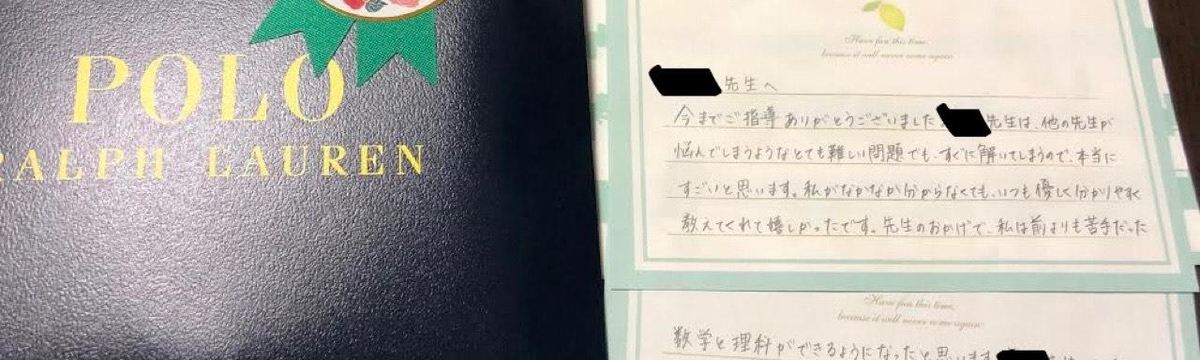 POLO
RALPH LAUREN
Have fun this time,
because it will never come again
先生へ
今までご指導ありがとうございました。先生は、他の先生が
悩んでしまうようなとても難しい問題でも、すぐに解いてしまうので、本当に
すごいと思います。私がなかなか分からなくても、いつも優しく分かりやすく
教えてくれて嬉しかったです。先生のおかげで、私は前よりも苦手だった
Have fun this time,
because it will never come again
数学と理科ができるようになったと思います